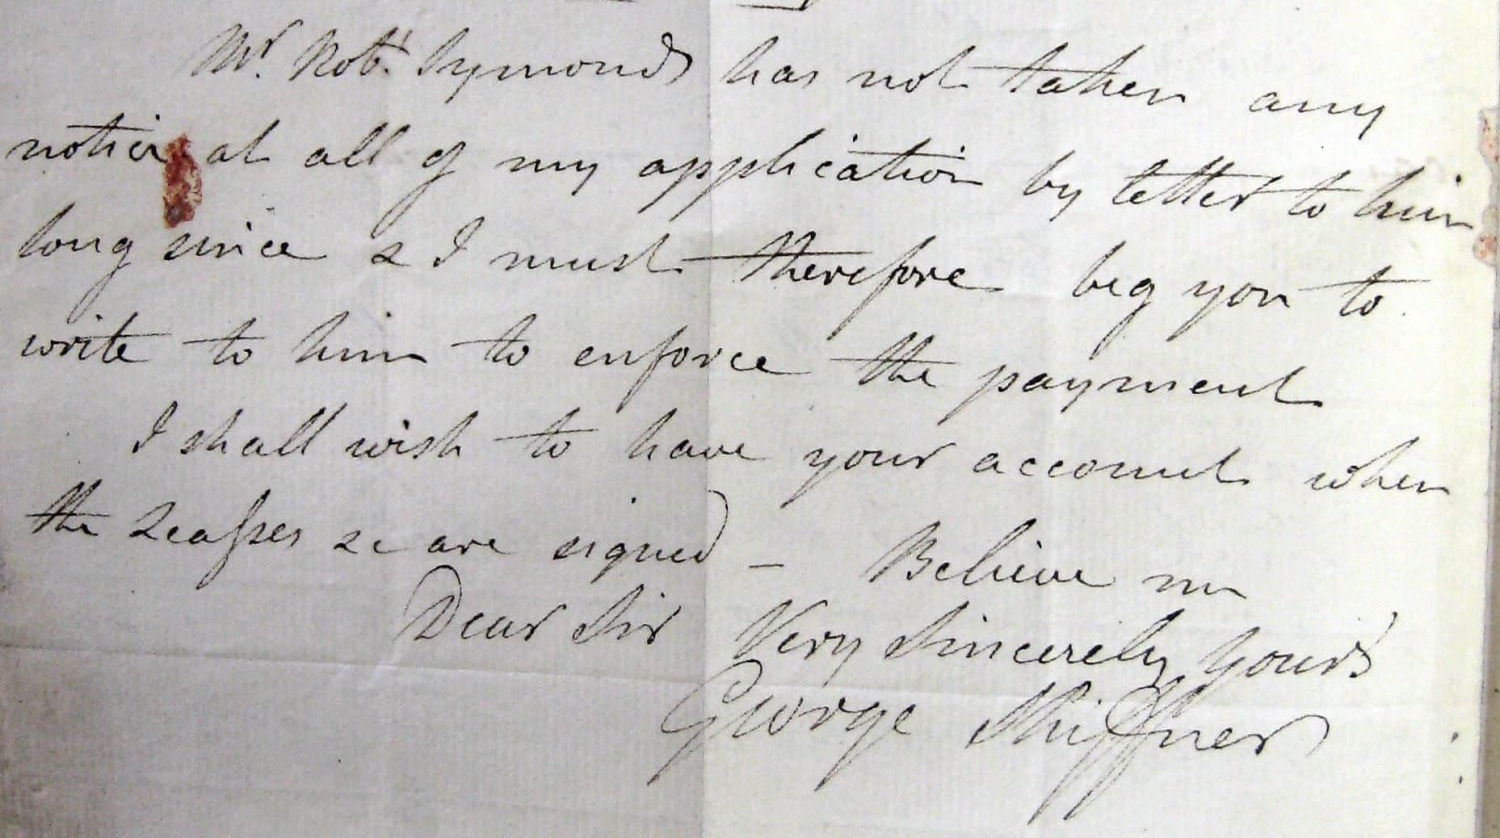 Mr. Robt. Symonds has not taken any
notice at all of my application by letter to him
long since & I must therefore beg you to
write to him to enforce the payment
I shall wish to have your account when
the Leasses &c are signed – Believe me
Dear Sir Very Sincerely Yours
George Shiffner